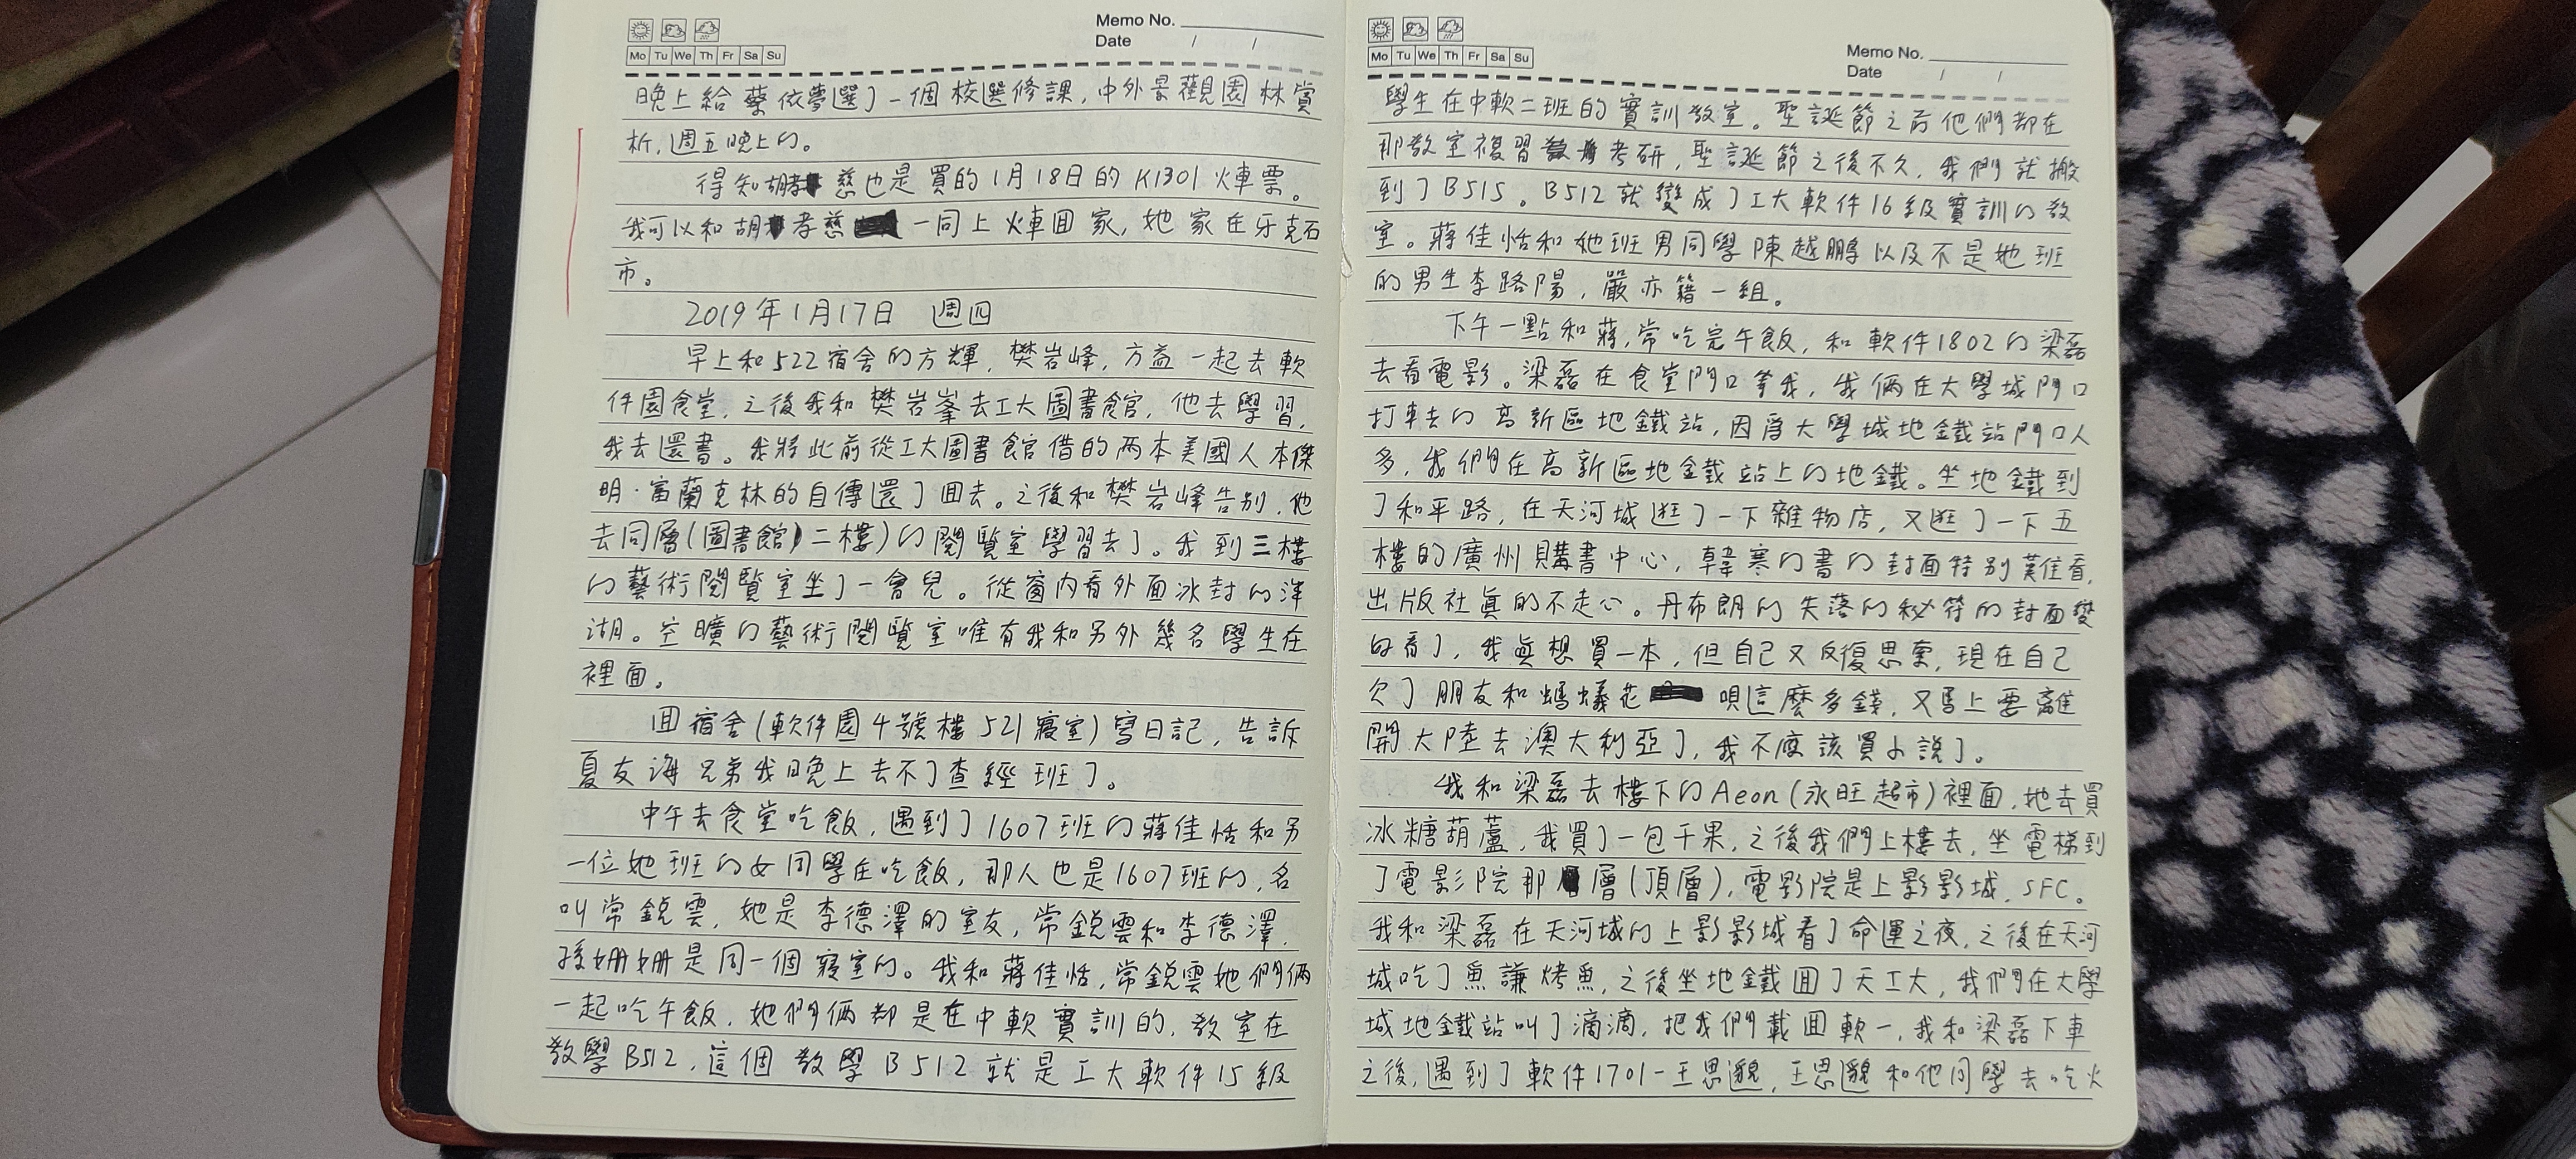 Memo No.
Date / /
Mo Tu We Th Fr Sa Su
晚上給蔡依夢選了一個校選修課,中外景觀園林賞
析,週五晚上的。
得知胡慈也是買的1月18日的K1301火車票。
我可以和胡孝慈一同上火車回家,她家在牙克石
市。
2019年1月17日 週四
早上和522宿舍的方輝,樊岩峰,方益一起去軟
件園食堂,之後我和樊岩峯去工大圖書館,他去學習,
我去還書。我將此前從工大圖書館借的两本美國人本傑
明·富蘭克林的自傳還了回去。之後和樊岩峰告别,他
去同層(圖書館)二樓)的閱覽室學習去了。我到三樓
的藝術閱覽室坐了一會兒。從窗內看外面冰封的泮
湖。空曠的藝術閱覽室唯有我和另外幾名學生在
裡面。
回宿舍(軟件園4號樓521寢室)寫日記,告訴
夏友海兄弟我晚上去不了查經班了。
中午去食堂吃飯,遇到了1607班的蔣佳恬和另
一位她班的女同學在吃飯,那人也是1607班的,名
叫常銳雲,她是李德澤的室友,常銳雲和李德澤,
孫姍姍是同一個寢室的。我和蔣佳恬,常銳雲她們俩
一起吃午飯,她們俩都是在中軟實訓的,教室在
教學B512,這個教學B512就是工大軟件15級
Mo Tu We Th Fr Sa Su
Memo No.
Date / /
學生在中軟二班的實訓教室。聖誕節之前他們都在
那教室複習考研,聖誕節之後不久,我們就搬
到了B515。B512就變成了工大軟件16級實訓的教
室。蔣佳恬和她班男同學陳越鵬以及不是她班
的男生李路陽,嚴亦籍一組。
下午一點和蔣,常吃完午飯,和軟件1802的梁磊
去看電影。梁磊在食堂門口等我,我俩在大學城門口
打車去的高新區地鐵站,因爲大學城地鐵站門口人
多,我們在高新區地鐵站上的地鐵。坐地鐵到
了和平路,在天河城逛了一下雜物店,又逛了一下五
樓的廣州購書中心,韓寒的書的封面特别難看,
出版社真的不走心。丹布朗的失落的秘符的封面變
好看了,我無想買一本,但自己又反復思索,現在自己
欠了朋友和螞蟻花唄這麼多錢,又馬上要離
開大陸去澳大利亞了,我不應該買小說了。
我和梁磊去樓下的Aeon(永旺超市)裡面,她去買
冰糖葫蘆,我買了一包干果,之後我們上樓去,坐電梯到
了電影院那層(頂層),電影院是上影影城,SFC。
我和梁磊在天河城的上影影城看了命運之夜,之後在天河
城吃了魚謙烤魚,之後坐地鐵回了天工大,我們在大學
城地鐵站叫了滴滴,把我們載回軟一,我和梁磊下車
之後,遇到了軟件1701-王思貌,王思貌和他同學去吃火